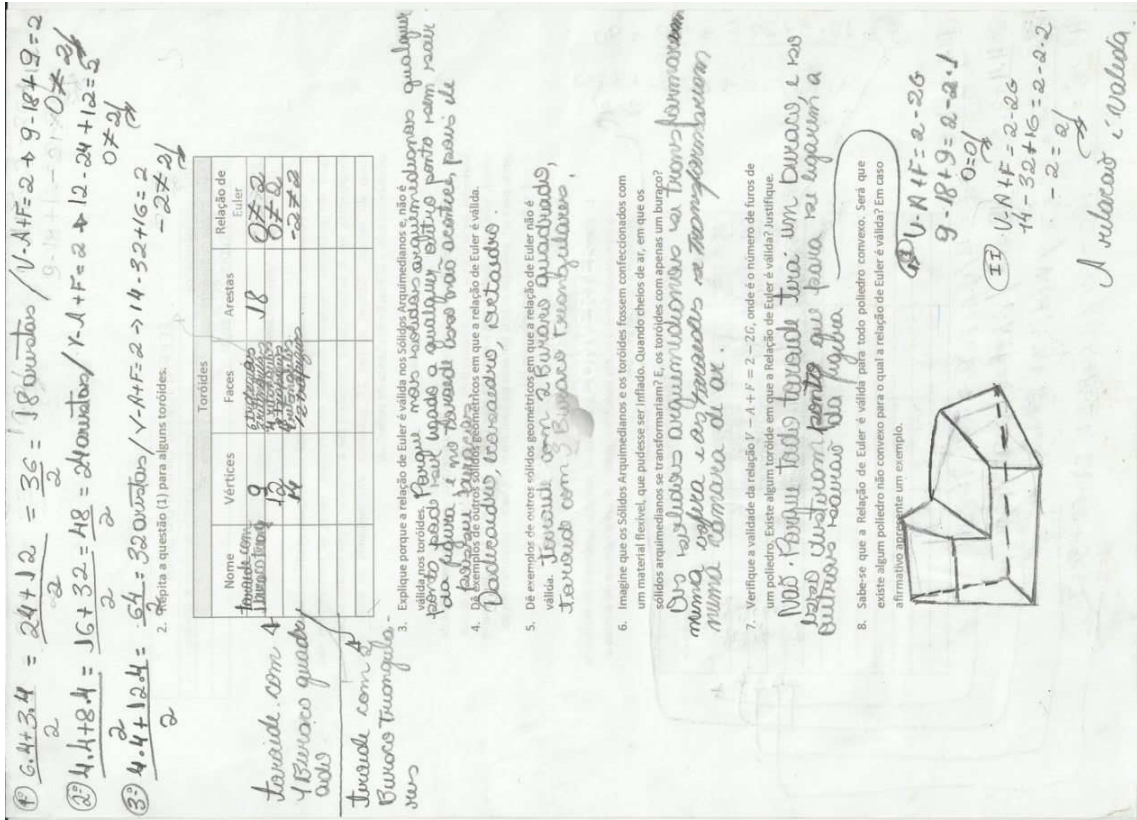 1º 6.4+3.4 / 2 = 24+12 / 2 = 36 / 2 = 18 arestas / V-A+F=2 → 9-18+9=2
0≠2//
2º 4.4+8.4 / 2 = 16+32 / 2 = 48 / 2 = 24 arestas / V-A+F=2 → 12-24+12=2
0≠2//
3º 4.4+12.4 / 2 = 64 / 2 = 32 arestas / V-A+F=2 → 14-32+16=2
-2≠2//
2. Repita a questão (1) para alguns toróides.
Toróides
Nome Vértices Faces Arestas Relação de Euler
toroide com 9 18 0≠2
12 0≠2
14 -2≠2
toroide com
1 Buraco quadr
ado
toroide com 2
Buraco triangula-
res
3. Explique porque a relação de Euler é válida nos Sólidos Arquimedianos e, não é
válida nos toróides. Porque nos solidos arquimedianos qualquer
ponto pode ser ligado a qualquer outro ponto sem sair
da figura e no toroide isso não acontece, pois ele
possui
4. Dê exemplos de outros sólidos geométricos em que a relação de Euler é válida.
Dodecaedro, icosaedro, octaedro.
5. Dê exemplos de outros sólidos geométricos em que a relação de Euler não é
válida. Toroide com 2 Buraco quadrado,
toroide com 3 Buraco triangulares,
6. Imagine que os Sólidos Arquimedianos e os toróides fossem confeccionados com
um material flexível, que pudesse ser inflado. Quando cheios de ar, em que os
sólidos arquimedianos se transformariam? E, os toróides com apenas um buraco?
Os solidos arquimedianos se transformariam
numa esfera e os toroides se transformariam
numa câmara de ar.
7. Verifique a validade da relação V − A + F = 2 − 2G, onde é o número de furos de
um poliedro. Existe algum toroide em que a Relação de Euler é válida? Justifique.
Não. Porque todo toroide terá um buraco e os
outros ponto que para se ligarem a
sairão da figura
8. Sabe-se que a Relação de Euler é válida para todo poliedro convexo. Será que
existe algum poliedro não convexo para o qual a relação de Euler é válida? Em caso
afirmativo apresente um exemplo.
I V-A+F=2-2G
9-18+9=2-2.1
0=0//
II V-A+F=2-2G
14-32+16=2-2.2
-2=2//
A relação é valida